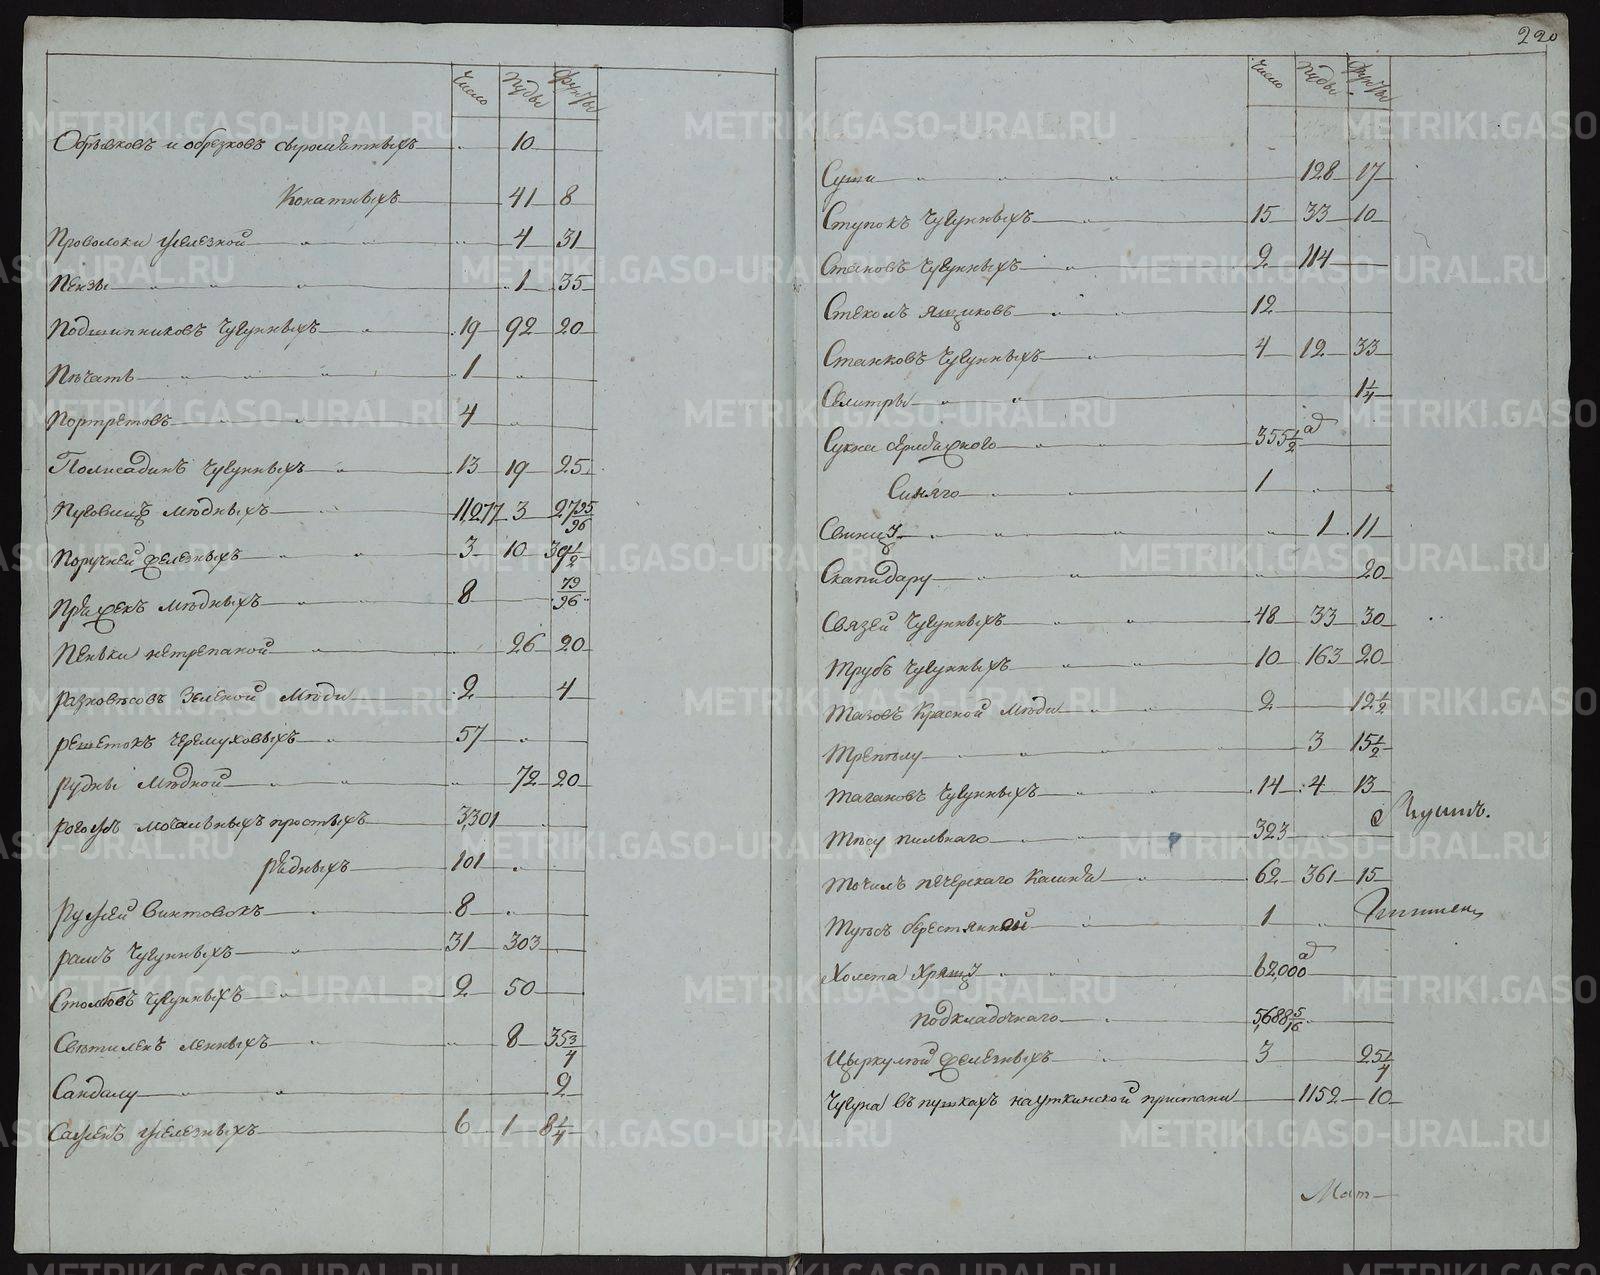 220
Число Пуды Фунты
Обрывковъ и обрезковъ сыромятныхъ 10
Конатныхъ 41 8
Проволоки железной 4 31
Пемзы 1 35
Подшипниковъ чугунныхъ 19 92 20
Печать 1
Портретовъ 4
Полисадинъ чугунныхъ 13 19 25
Пуговицъ медныхъ 11,277 3 27 95/96
Поручней железныхъ 3 10 39 1/2
Пряжекъ медныхъ 8 79/96
Пеньки нетрепаной 26 20
Разновесовъ зеленой меди 2 4
Решетокъ черемуховыхъ 57
Рудны медной 72 20
Рогожъ мочальныхъ простыхъ 3,301
рядныхъ 101
Ружей винтовокъ 8
Рамъ чугунныхъ 31 303
Столбовъ чугунныхъ 2 50
Светиленъ ленныхъ 8 35 3/4
Сандалу 2
Саженъ железныхъ 6 1 8 1/4
Число Пуды Фунты
Суши 128 17
Ступокъ чугунныхъ 15 33 10
Становъ чугунныхъ 2 114
Стеколъ ящиковъ 12
Станковъ чугунныхъ 4 12 33
Селитры 1 1/4
Сукна сермяжного 355 1/2 а
Синяго 1
Свинцу 1 11
Скапидару 20
Связей чугунныхъ 48 33 30
Трубъ чугунныхъ 10 163 20
Тазовъ красной меди 2 12 1/2
Трепелу 3 15 1/2
Тагановъ чугунныхъ 14 4 13
Тесу пильнаго 323
Точилъ печерскаго камня 62 361 15
Туесъ берестянной 1
Холста хрящу 62,000 а
подкладочнаго 5,688 5/16
Цыркулей железныхъ 3 25 1/4
Чугуна въ пушкахъ на уткинской пристани 1152 10
Мат
METRIKI.GASO-URAL.RU